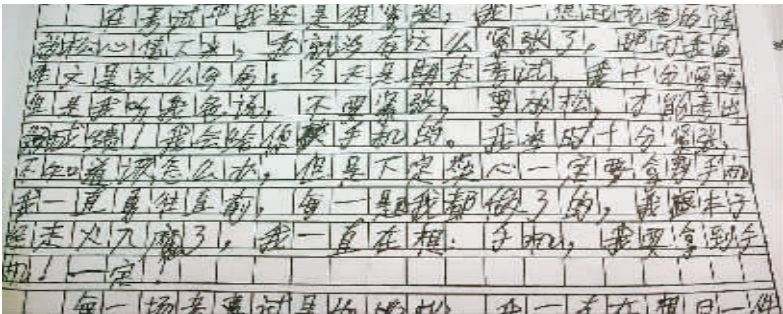 在考试中我还是很紧张,我一想起老爸的话
放松心情下来,我就没有这么紧张了,那时我的
作文是这么写的:今天是期末考试,我十分紧张,
但是我听我爸说,不要紧张,要放松,才能考出
好成绩!我会给你买手机的。我当时十分紧张,
不知道该怎么办,但是下定决心一定要拿到手机
我一直勇往直前,每一题我都做了的,我跟本子
走火入魔了,我一直在想:手机,我要拿到手
机!一定!
每一场考试是